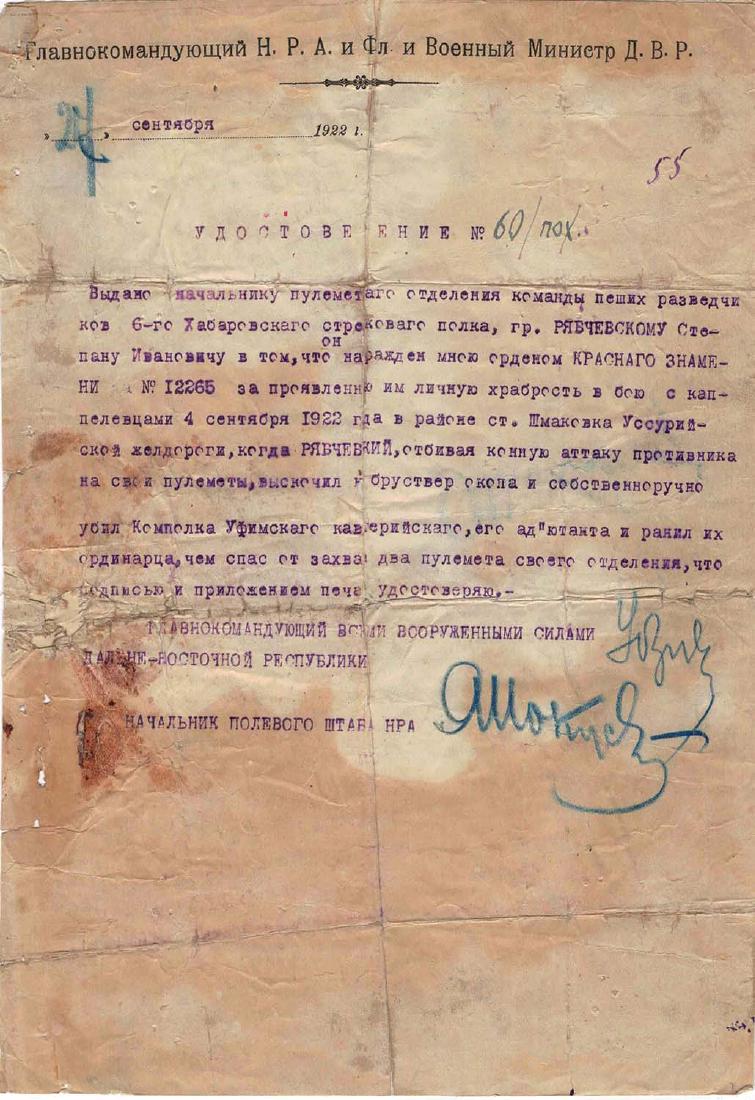 Главнокомандующий Н. Р. А. и Фл. и Военный Министр Д. В. Р.
" " сентября 1922 г.
55
УДОСТОВЕ ЕНИЕ № 60/пох.
Выдано начальнику пулеметаго отделения команды пеших разведчи
ков 6-го Хабаровскаго стрековаго полка, гр. РЯБЧЕВСКОМУ Сте-
он
пану Ивановичу в том,что наражден мною орденом КРАСНАГО ЗНАМЕ-
НИ № 12265 за проявленню им личную храбрость в бою с кап-
пелевцами 4 сентября 1922 гда в районе ст. Шмаковка Уссурий-
ской желдороги,когда РЯБЧЕВКИЙ,отбивая конную аттаку противника
на свои пулеметы,выскочил н бруствер окопа и собственноручно
убил Комполка Уфимскаго кавлерийскаго,его ад"ютанта и ранил их
ординарца,чем спас от захва два пулемета своего отделения,что
подписью и приложением печа удостоверяю.-
ГЛАВНОКОМАНДУЮЩИЙ ВСЕМИ ВООРУЖЕННЫМИ СИЛАМИ
ДАЛЬНЕ-ВОСТОЧНОЙ РЕСПУБЛИКИ
НАЧАЛЬНИК ПОЛЕВОГО ШТАБА НРА